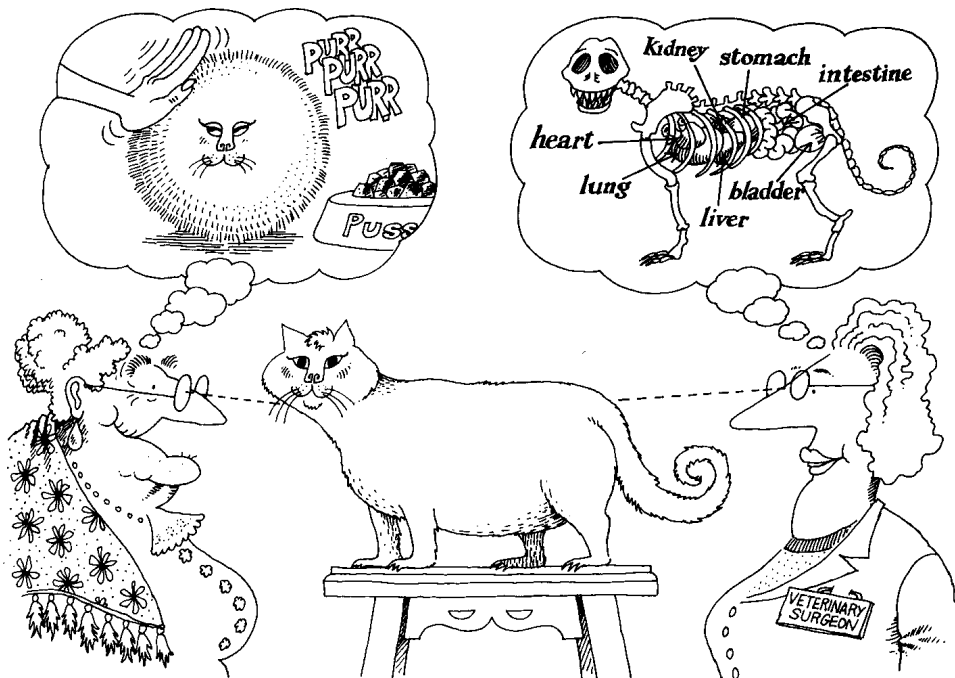 PURR
PURR
PURR
PUSS
Kidney
stomach
intestine
heart
lung
bladder
liver
VETERINARY
SURGEON